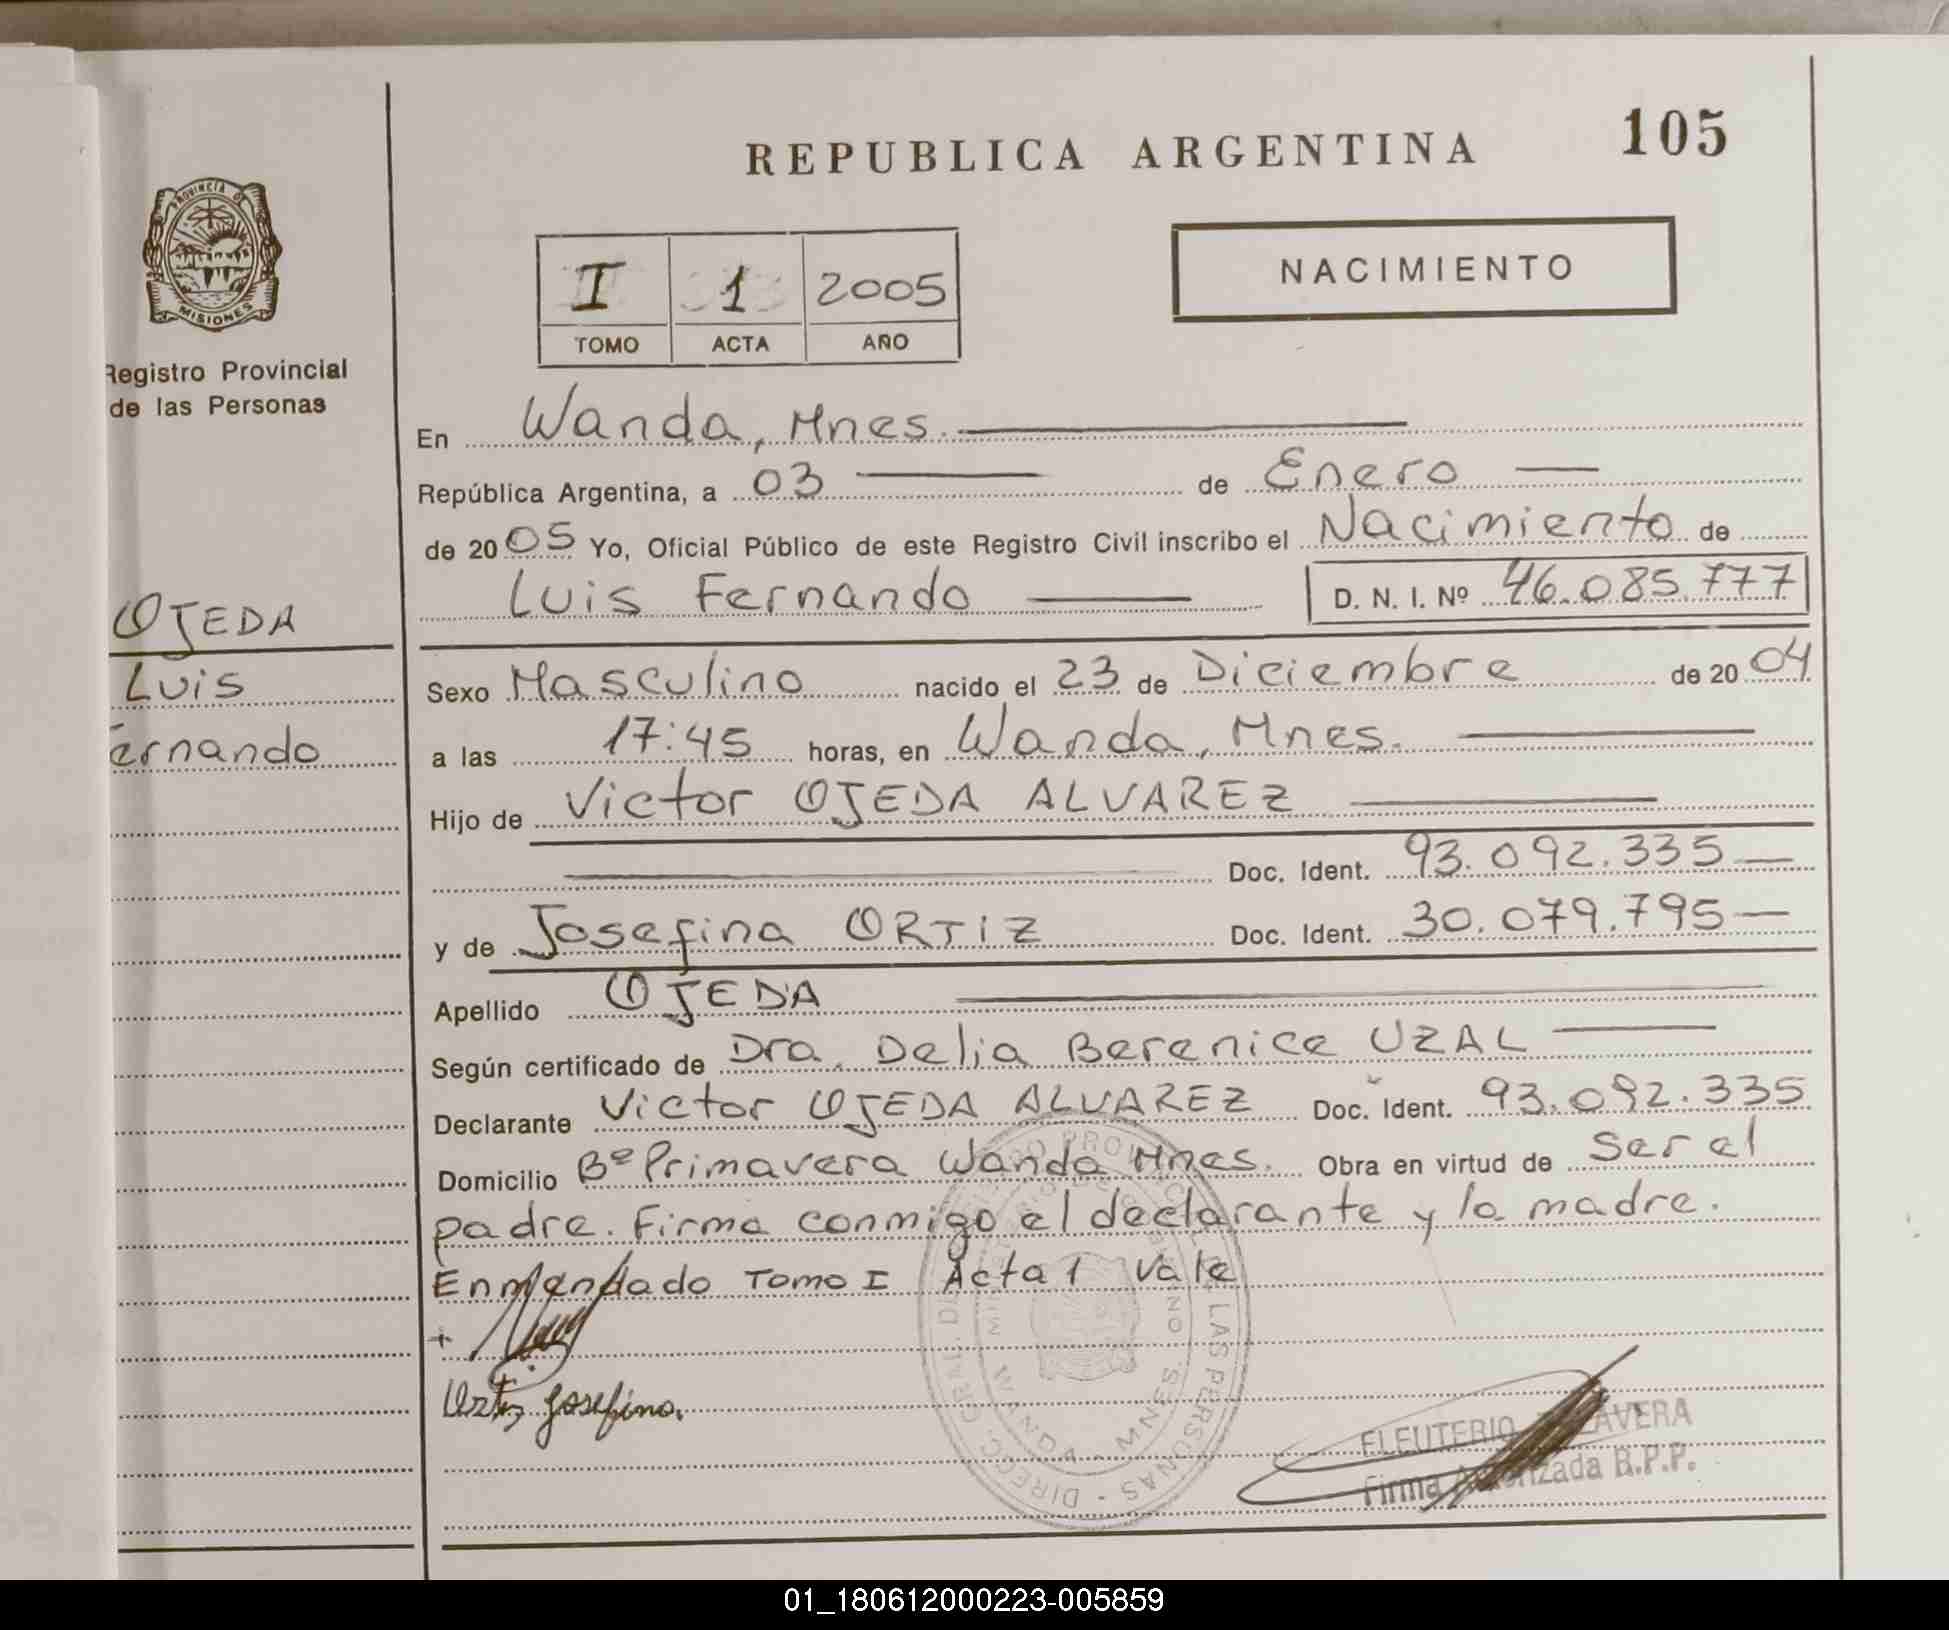 REPUBLICA ARGENTINA
105
PROVINCIA DE
MISIONES
Registro Provincial
de las Personas
I 1 2005
TOMO ACTA AÑO
NACIMIENTO
En Wanda, Mnes.
República Argentina, a 03 de Enero
de 2005 Yo, Oficial Público de este Registro Civil inscribo el Nacimiento de
Luis Fernando D. N. I. Nº 46.085.777
OJEDA
Luis
Fernando
Sexo Masculino nacido el 23 de Diciembre de 2004
a las 17:45 horas, en Wanda, Mnes.
Hijo de Victor OJEDA ALVAREZ
Doc. Ident. 93.092.335
y de Josefina ORTIZ Doc. Ident. 30.079.795
Apellido OJEDA
Según certificado de Dra. Delia Berenice UZAL
Declarante Victor OJEDA ALVAREZ Doc. Ident. 93.092.335
Domicilio Bº Primavera Wanda Mnes. Obra en virtud de Ser el
padre. Firma conmigo el declarante y la madre.
Enmendado Tomo I Acta 1 Vale
Ortiz Josefina.
WANDA - MNES
ELEUTERIO
Firma Autorizada R.P.P.
01_180612000223-005859